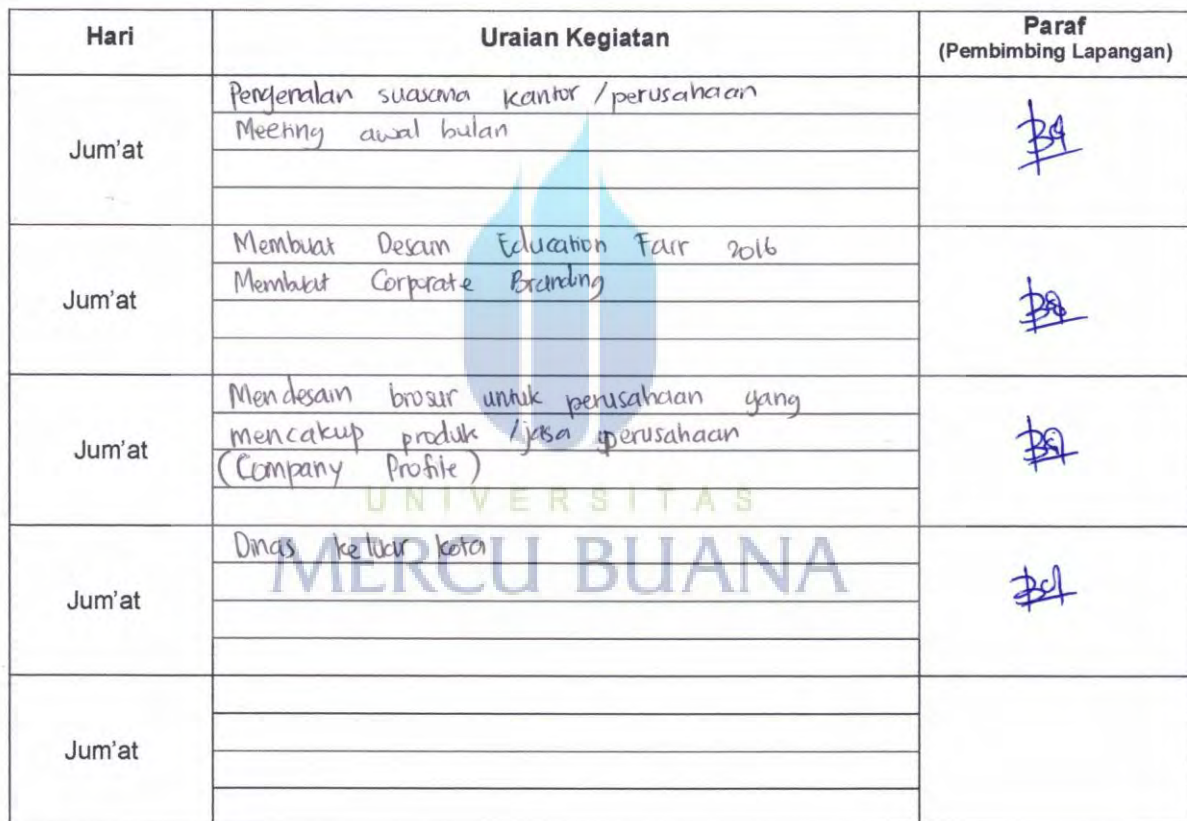 Hari Uraian Kegiatan Paraf
(Pembimbing Lapangan)
Pengenalan suasana kantor / perusahaan
Meeting awal bulan
Jum'at
Membuat Desain Education Fair 2016
Membuat Corporate Branding
Jum'at
Mendesain brosur untuk perusahaan yang
mencakup produk / jasa perusahaan
Jum'at
(Company Profile)
UNIVERSITAS
Dinas keluar kota
MERCU BUANA
Jum'at
Jum'at